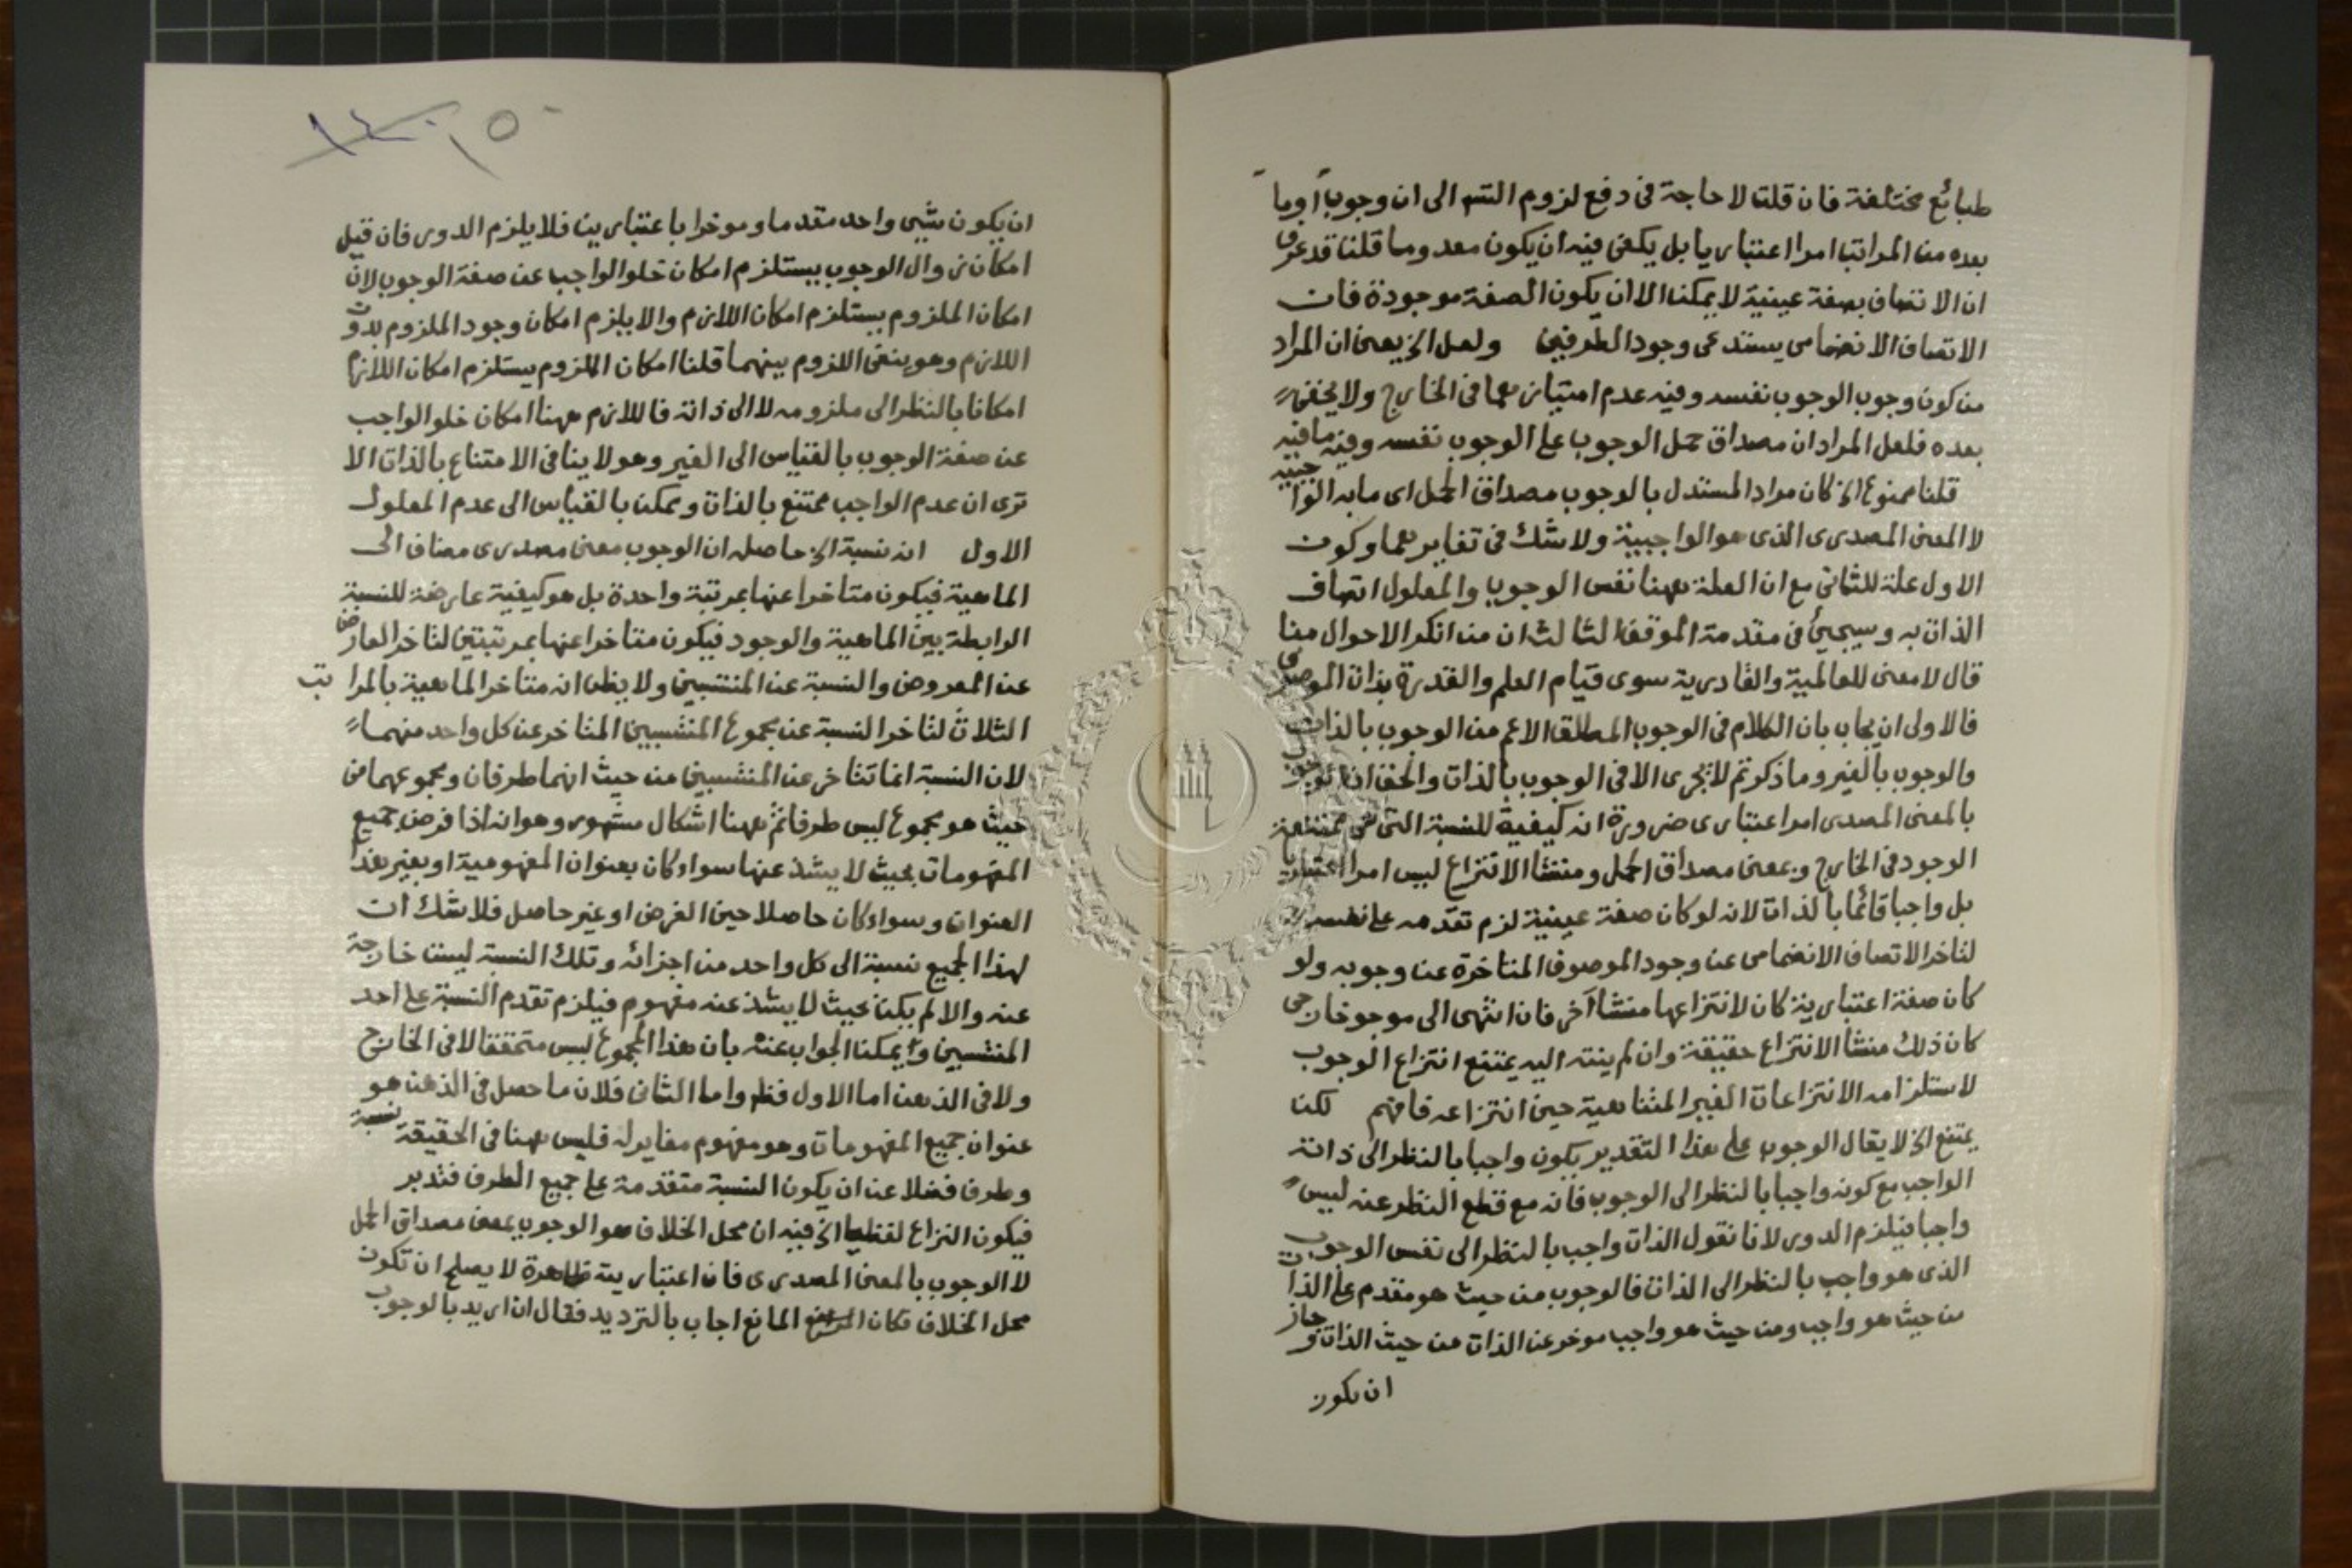 طبائع مختلفة فان قلت لا حاجة في دفع لزوم التسم الى ان وجوب اوما
بعده من المراتب امرا اعتباريا بل يكفي فيه ان يكون معدوما قلنا قد عرف
ان الاتصاف بصفة عينية لا يمكن الا ان يكون الصفة موجودة فان
الاتصاف الانضمامي يستدعى وجود الطرفين ولعل الخ يعنى ان المراد
من كون وجوب الوجوب نفسه وفيه عدم امتيازهما في الخارج ولا يخفى
بعده فلعل المراد ان مصداق حمل الوجوب على الوجوب نفسه وفيه ما فيه
قلنا ممنوع الخ كان مراد المستدل بالوجوب مصداق الحمل اى ما به الواجبية
لا المعنى المصدري الذى هو الواجبية ولا شك في تغايرهما وكون
الاول علة للثاني مع ان العلة ههنا نفس الوجوب والمعلول اتصاف
الذات به وسيجيئ في مقدمة الموقف الثالث ان من انكر الاحوال منا
قال لا معنى للعالمية والقادرية سوى قيام العلم والقدرة بذات الموصوف
فالاولى ان يجاب بان الكلام في الوجوب المطلق الاعم من الوجوب بالذات
والوجوب بالغير وما ذكرتم لا يجرى الا في الوجوب بالذات والحق ان الوجوب
بالمعنى المصدى امرا اعتبارى ضرورة انه كيفية للنسبة التى هى ممتنعة
الوجود في الخارج وبمعنى مصداق الحمل ومنشا الانتزاع ليس امرا اعتباريا
بل واجبا قائما بالذات لانه لو كان صفة عينية لزم تقدمه على نفسه
لتاخر الاتصاف الانضمامى عن وجود الموصوف المتاخرة عن وجوبه ولو
كان صفة اعتبارية كان لانتزاعها منشا آخر فان انتهى الى موجود خارجى
كان ذلك منشا الانتزاع حقيقة وان لم ينته اليه يمتنع انتزاع الوجوب
لاستلزامه الانتزاعات الغير المتناهية حين انتزاعه فافهم لكن
يمتنع الخ لا يقال الوجوب على هذا التقدير يكون واجبا بالنظر الى ذاته
الواجب مع كونه واجبا بالنظر الى الوجوب فانه مع قطع النظر عنه ليس
واجبا فيلزم الدور لانا نقول الذات واجب بالنظر الى نفس الوجوب
الذى هو واجب بالنظر الى الذات فالوجوب من حيث هو مقدم على الذات
من حيث هو واجب ومن حيث هو واجب موخر عن الذات من حيث الذات وجاز
ان يكون
١٥٠
ان يكون شيى واحد مقدما وموخرا باعتبارين فلا يلزم الدور فان قيل
امكان زوال الوجوب يستلزم امكان خلو الواجب عن صفة الوجوب لان
امكان الملزوم يستلزم امكان اللازم والا يلزم امكان وجود الملزوم بدون
اللازم وهو ينفى اللزوم بينهما قلنا امكان الملزوم يستلزم امكان اللازم
امكانا بالنظر الى ملزومه لا الى ذاته فاللازم ههنا امكان خلو الواجب
عن صفة الوجوب بالقياس الى الغير وهو لا ينافى الامتناع بالذات الا
ترى ان عدم الواجب ممتنع بالذات وممكن بالقياس الى عدم المعلول
الاول انه نسبة الخ حاصله ان الوجوب معنى مصدرى مضاف الى
الماهية فيكون متاخرا عنها بمرتبة واحدة بل هو كيفية عارضة للنسبة
الرابطة بين الماهية والوجود فيكون متاخرا عنها بمرتبتين لتاخر العارض
عن المعروض والنسبة عن المنتسبين ولا يظن انه متاخر الماهية بالمراتب
الثلاث لتاخر النسبة عن مجموع المنتسبين المتاخر عن كل واحد منهما
لان النسبة انما تتاخر عن المنتسبين من حيث انهما طرفان ومجموعهما من
حيث هو مجموع ليس طرفا ثم ههنا اشكال مشهور وهو انه اذا فرض جميع
المفهومات بحيث لا يشذ عنها سواء كان بعنوان المفهومية او بغير هذا
العنوان وسواء كان حاصلا حين الفرض او غير حاصل فلا شك ان
لهذا الجميع نسبة الى كل واحد من اجزائه وتلك النسبة ليست خارجة
عنه والا لم يكن بحيث لا يشذ عنه مفهوم فيلزم تقدم النسبة على احد
المنتسبين ويمكن الجواب عنه بان هذا المجموع ليس متحققا لا في الخارج
ولا في الذهن اما الاول فظ واما الثانى فلان ما حصل في الذهن هو
عنوان جميع المفهومات وهو مفهوم مغاير له فليس ههنا في الحقيقة نسبة
وطرف فضلا عن ان يكون النسبة متقدمة على جميع الطرف فتدبر
فيكون النزاع لفظيا الخ فيه ان محل الخلاف هو الوجوب بمعنى مصداق الحمل
لا الوجوب بالمعنى المصدرى فان اعتباريته ظاهرة لا يصلح ان تكون
محل الخلاف فكان المانع اجاب بالترديد فقال ان اريد بالوجوب